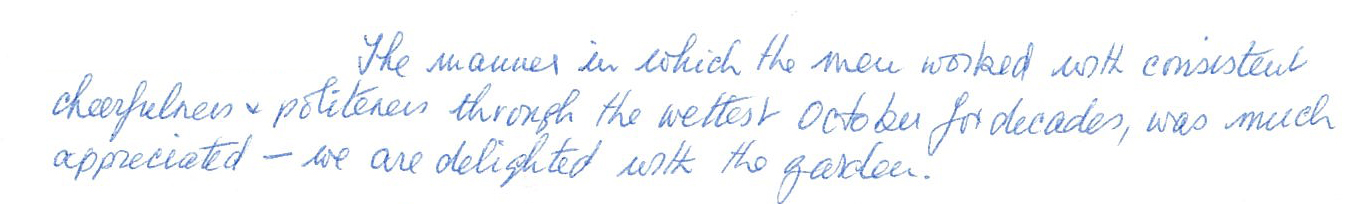 The manner in which the men worked with consistent
cheerfulness & politeness through the wettest October for decades, was much
appreciated – we are delighted with the garden.